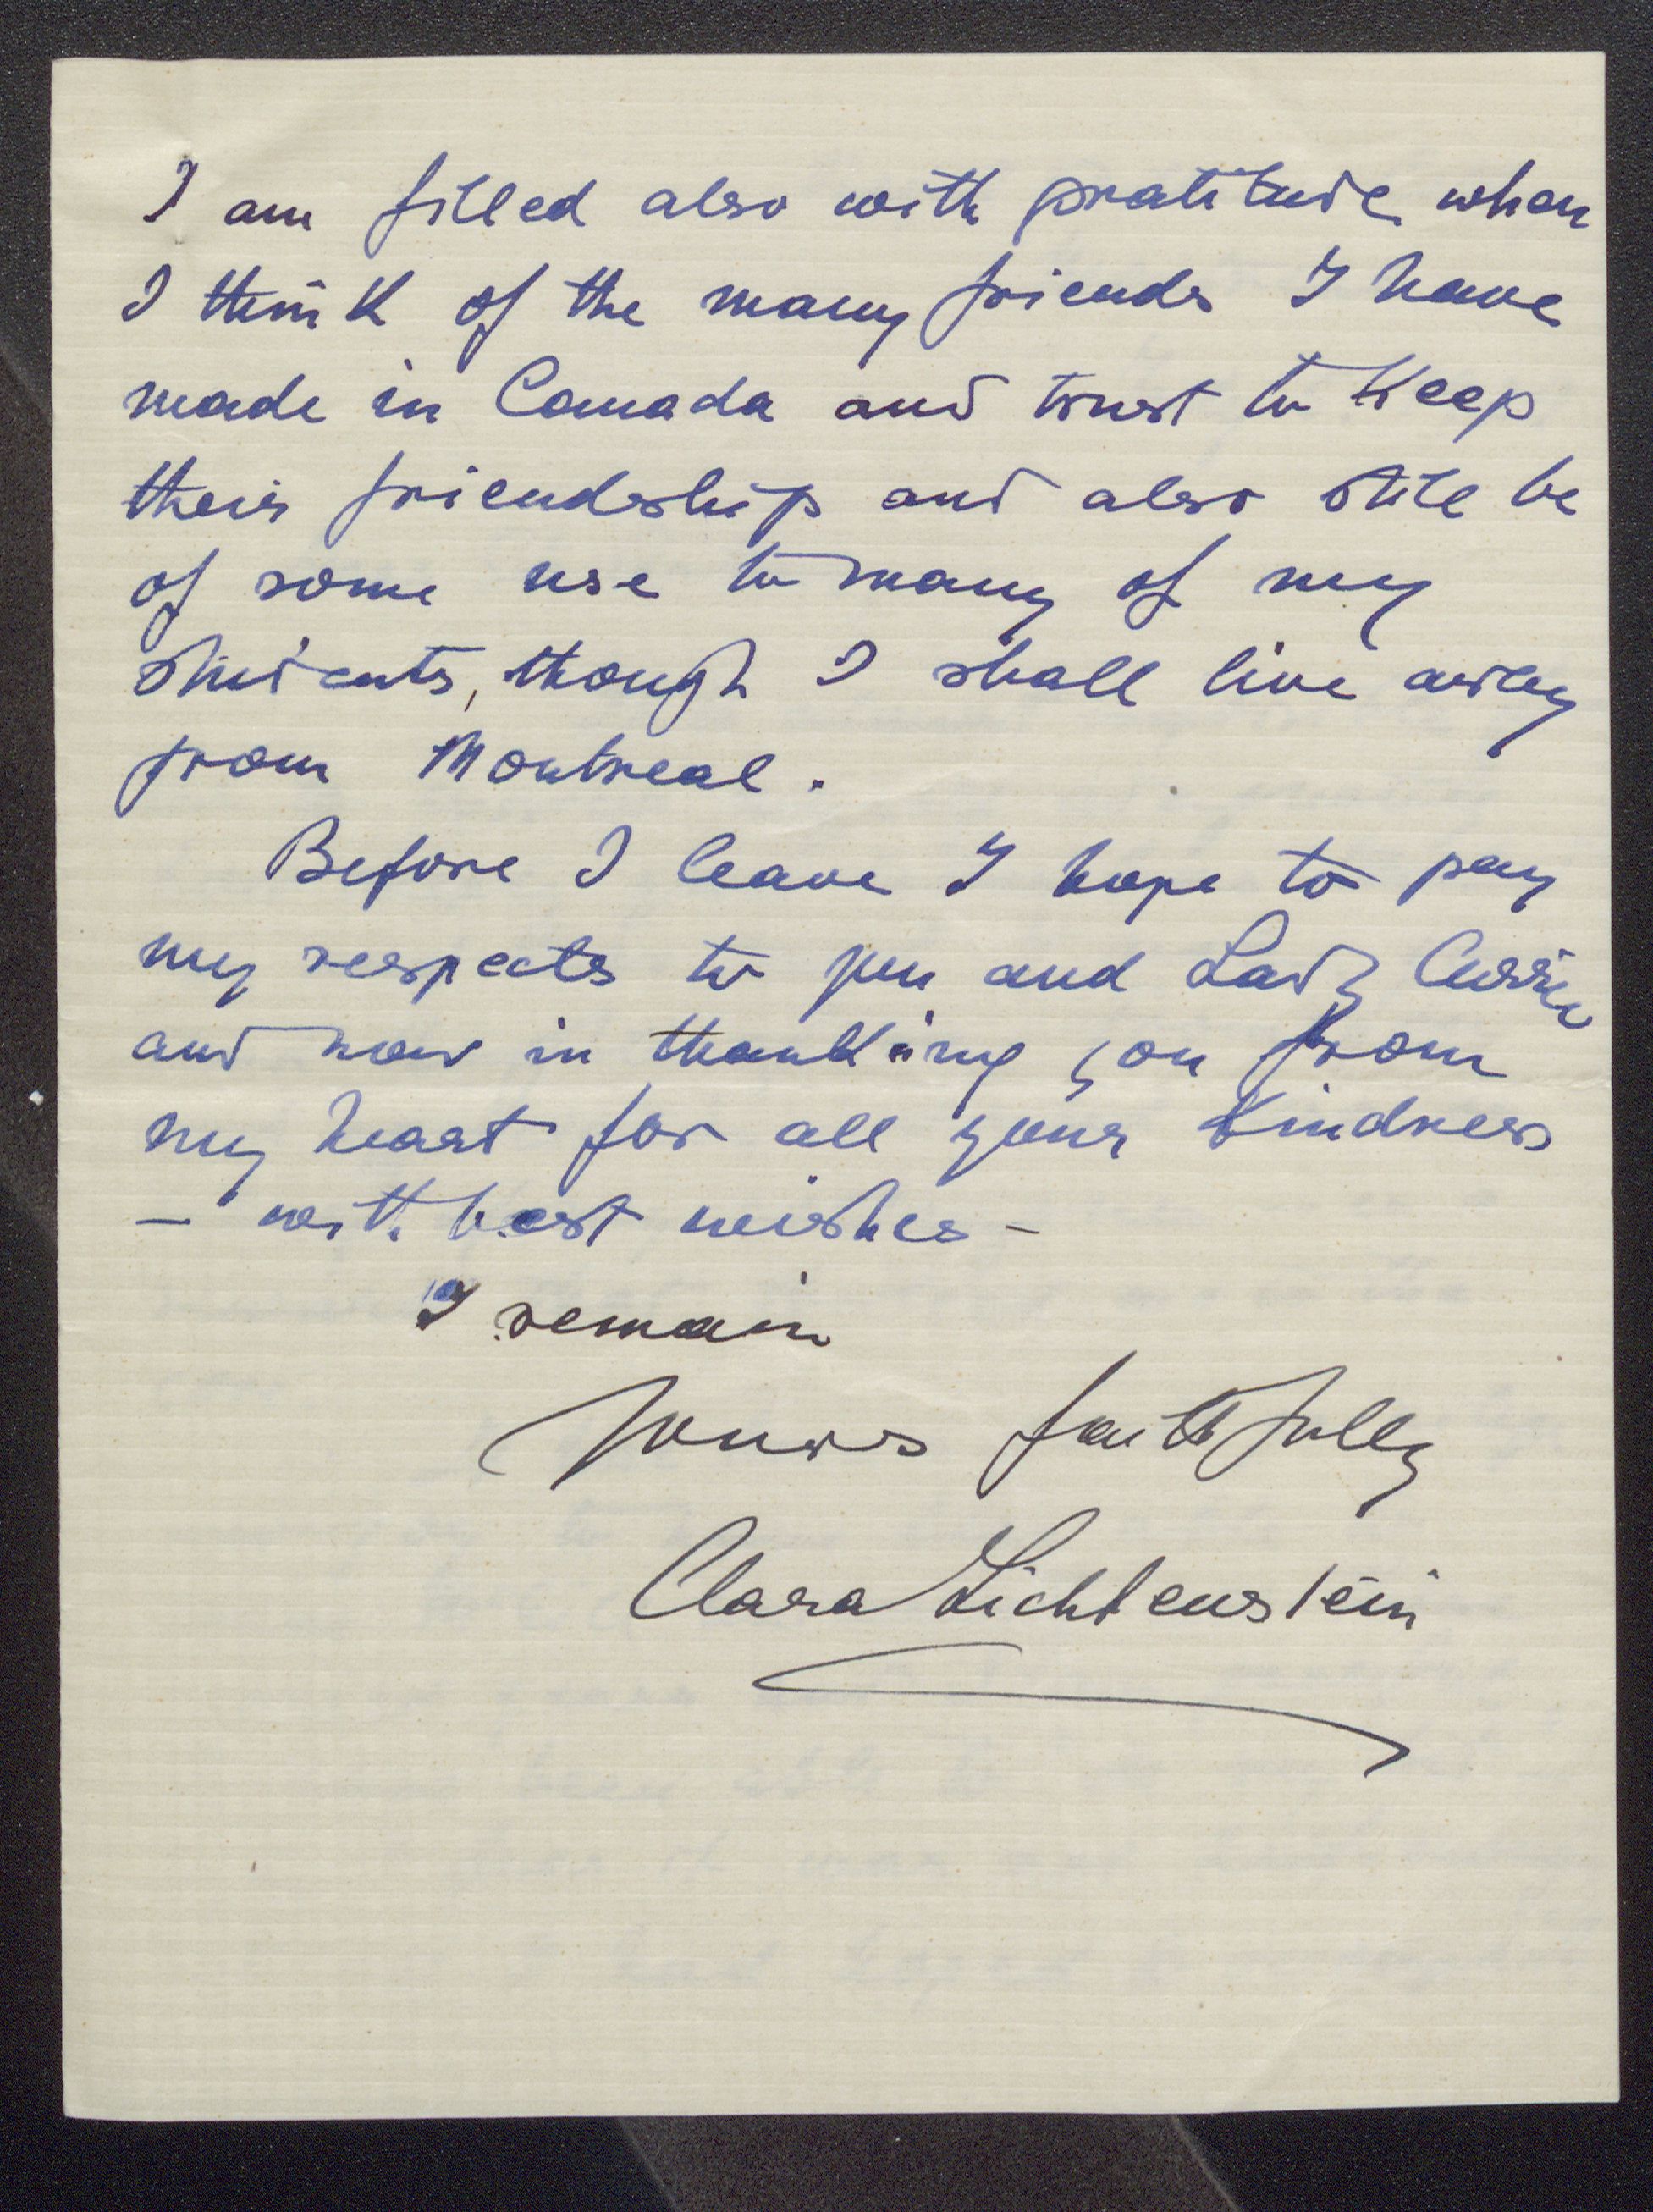 I am filled also with gratitude when
I think of the many friends I have
made in Canada and trust to keep
their friendship and also still be
of some use to many of my
students, though I shall live away
from Montreal.
Before I leave I hope to pay
my respects to you and Lady Currie
and now in thanking you from
my heart for all your kindness
- with best wishes -
I remain
Yours faithfully
Clara Lichtenstein